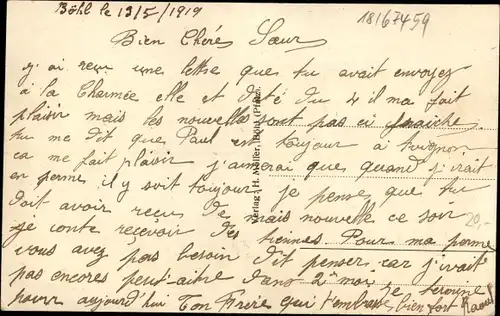 Böhl le 13/5/1919
18167459
Bien Chéres Sœur
j'ai reçu une lettre que tu avait envoyez
à la Charmée elle et daté du 4 il ma fait
plaisir mais les nouvelles sont pas ci fraiche
tu me dit que Paul est toujour a
ca me fait plaisir j'aimerai que quand j'irait
en perme il y soit toujour je pense que tu
doit avoir reçu de mais nouvelle ce soir
je conte recevoir des tiennes Pour ma perme
vous avez pas besoin dit penser car j'irait
pas encores peut-aitre dans 2 mois je termine
pour aujourd'hui Ton Frère qui t'embrasse bien fort Raoul
Verlag: H. Müller, Böhl (Pfalz).
20,-